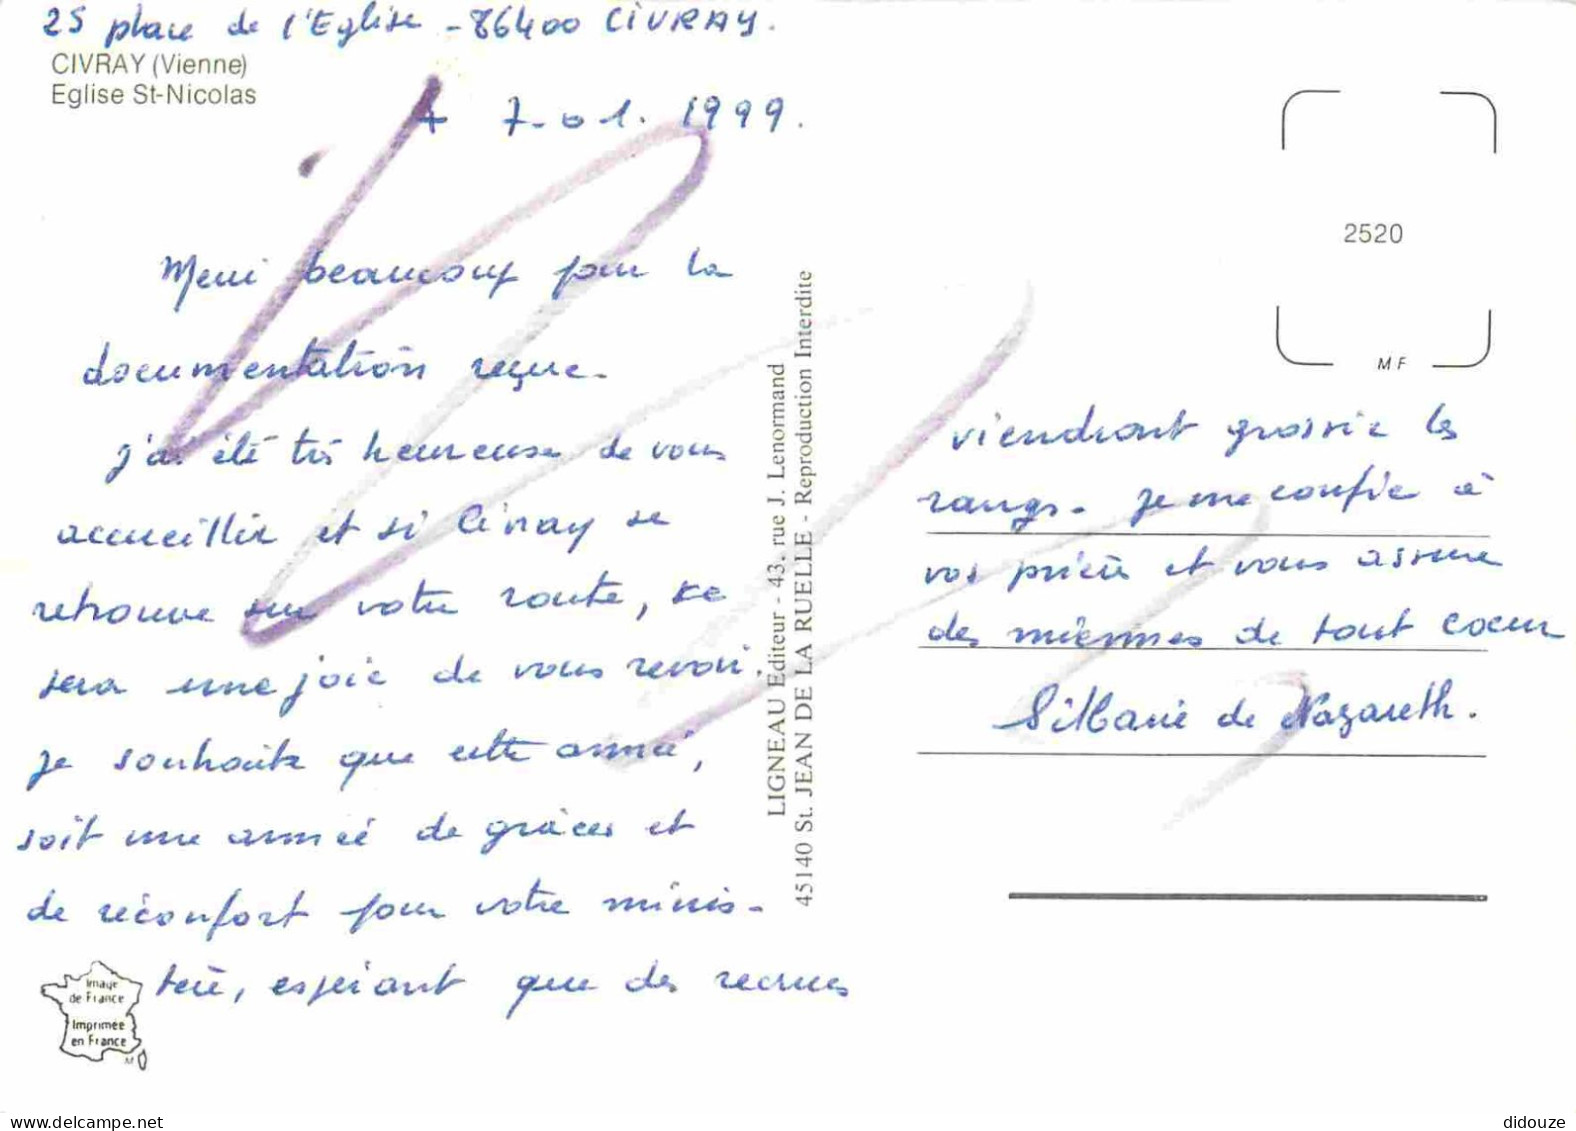 25 place de l'Eglise - 86400 CIVRAY.
CIVRAY (Vienne)
Eglise St-Nicolas
7-01. 1999.
Merci beaucoup pour la
documentation reçue.
j'ai été très heureuse de vous
accueillir et si Civray se
retrouve sur votre route, ce
sera une joie de vous revoir.
je souhaite que cette année,
soit une année de grâces et
de réconfort pour votre minis-
tère, espérant que des recrues
Image
de France
Imprimée
en France
LIGNEAU Editeur - 43, rue J. Lenormand
45140 St. JEAN DE LA RUELLE - Reproduction Interdite
2520
MF
viendront grossir les
rangs. je me confie à
vos prières et vous assure
des miennes de tout coeur
Marie de Nazareth.
delcampe.net
didouze